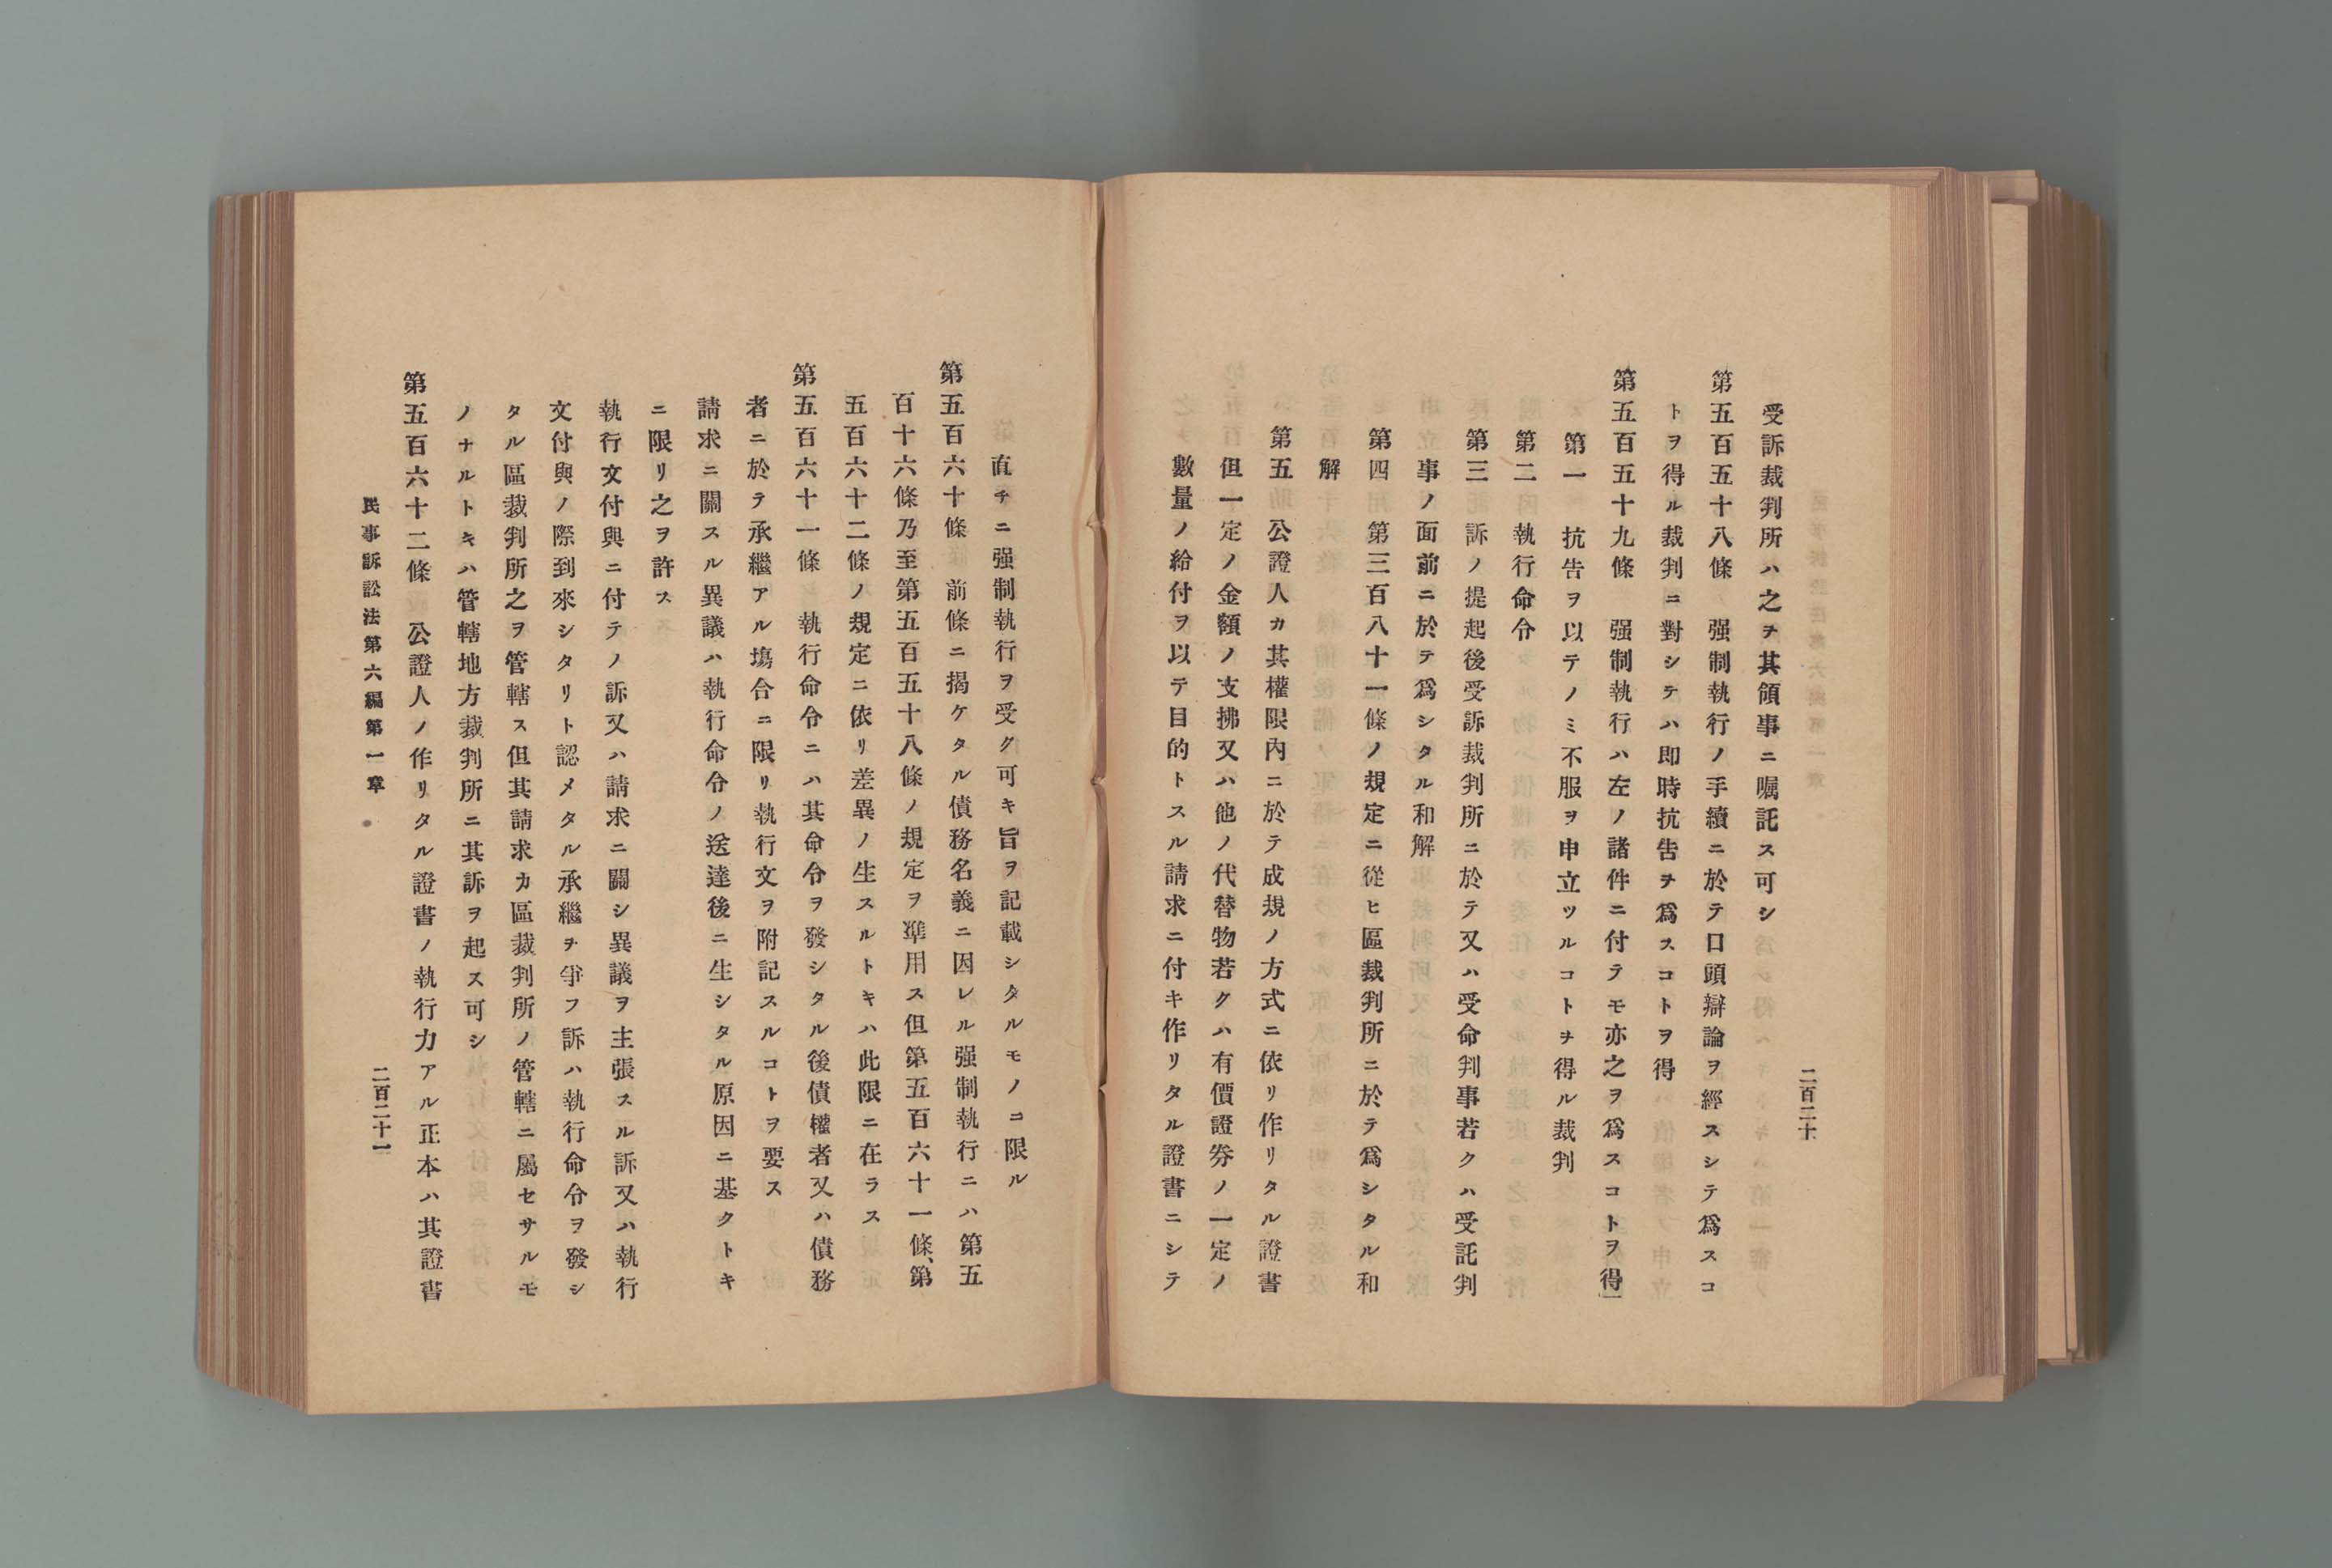 二百二十
受訴裁判所ハ之ヲ其領事ニ囑託ス可シ
第五百五十八條　强制執行ノ手續ニ於テ口頭辯論ヲ經スシテ爲スコ
トヲ得ル裁判ニ對シテハ即時抗告ヲ爲スコトヲ得
第五百五十九條　强制執行ハ左ノ諸件ニ付テモ亦之ヲ爲スコトヲ得
第一　抗告ヲ以テノミ不服ヲ申立ツルコトヲ得ル裁判
第二　執行命令
第三　訴ノ提起後受訴裁判所ニ於テ又ハ受命判事若クハ受託判
事ノ面前ニ於テ爲シタル和解
第四　第三百八十一條ノ規定ニ從ヒ區裁判所ニ於テ爲シタル和
解
第五　公證人カ其權限內ニ於テ成規ノ方式ニ依リ作リタル證書
但一定ノ金額ノ支拂又ハ他ノ代替物若クハ有價證券ノ一定ノ
數量ノ給付ヲ以テ目的トスル請求ニ付キ作リタル證書ニシテ
直チニ强制執行ヲ受ク可キ旨ヲ記載シタルモノニ限ル
第五百六十條　前條ニ揭ケタル債務名義ニ因レル强制執行ニハ第五
百十六條乃至第五百五十八條ノ規定ヲ準用ス但第五百六十一條、第
五百六十二條ノ規定ニ依リ差異ノ生スルトキハ此限ニ在ラス
第五百六十一條　執行命令ニハ其命令ヲ發シタル後債權者又ハ債務
者ニ於テ承繼アル塲合ニ限リ執行文ヲ附記スルコトヲ要ス
請求ニ關スル異議ハ執行命令ノ送達後ニ生シタル原因ニ基クトキ
ニ限リ之ヲ許ス
執行文付與ニ付テノ訴又ハ請求ニ關シ異議ヲ主張スル訴又ハ執行
文付與ノ際到來シタリト認メタル承繼ヲ爭フ訴ハ執行命令ヲ發シ
タル區裁判所之ヲ管轄ス但其請求カ區裁判所ノ管轄ニ屬セサルモ
ノナルトキハ管轄地方裁判所ニ其訴ヲ起ス可シ
第五百六十二條　公證人ノ作リタル證書ノ執行力アル正本ハ其證書
民事訴訟法第六編第一章
二百二十一